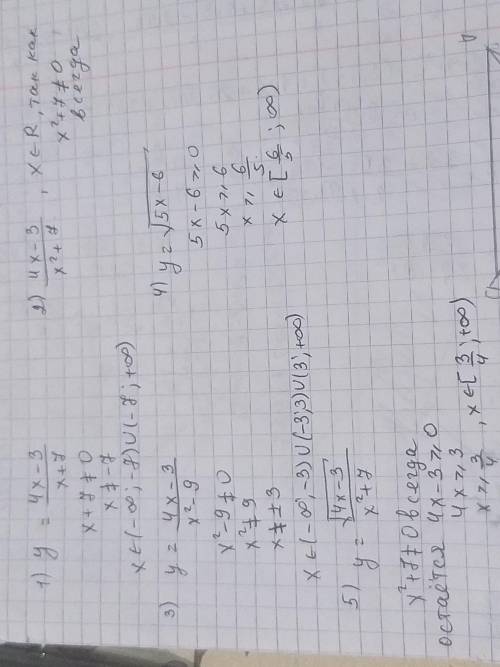 1) y = \frac{4x-3}{x+7}
x+7≠0
x≠-7
x∈(-∞;-7)∪(-7;+∞)
2) \frac{4x-3}{x²+7}, x∈R, так как
x²+7≠0
всегда
3) y = \frac{4x-3}{x²-9}
x²-9≠0
x²≠9
x≠±3
x∈(-∞;-3)∪(-3;3)∪(3;+∞)
4) y=√(5x-6)
5x-6⩾0
5x⩾6
x⩾\frac{6}{5}
x∈[\frac{6}{5};∞)
5) y = \frac{√(4x-3)}{x²+7}
x²+7≠0 всегда
остаётся 4x-3⩾0
4x⩾3
x⩾\frac{3}{4}, x∈[\frac{3}{4};+∞)